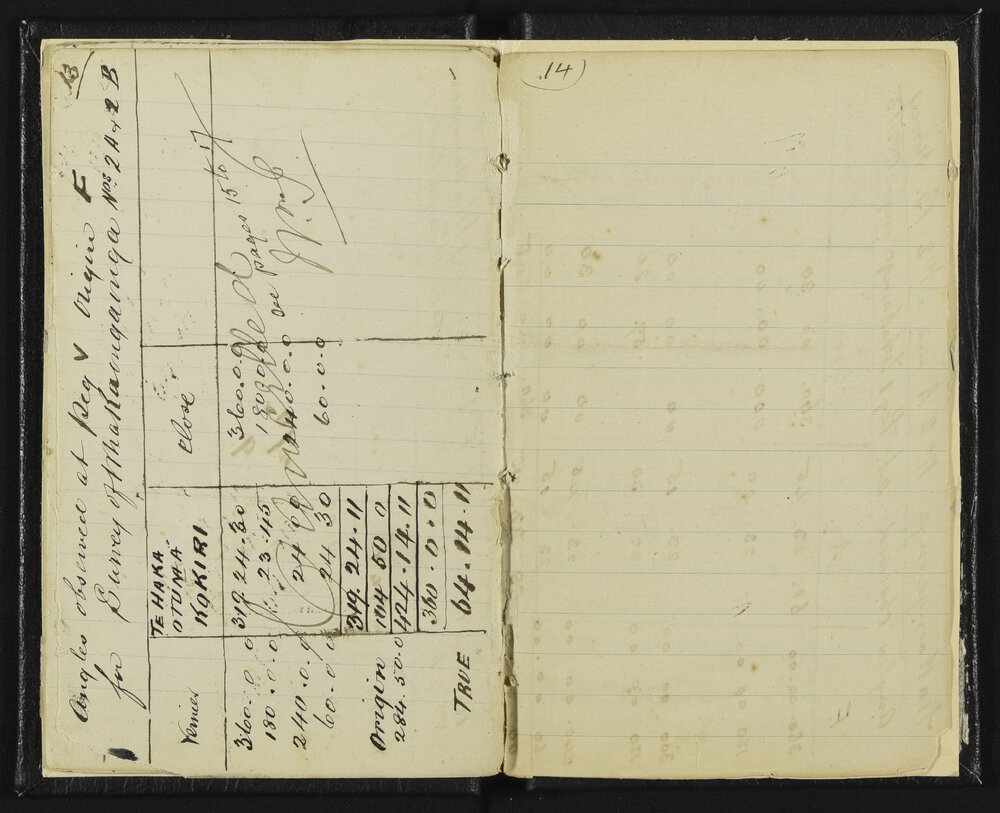 13
Angles observed at Peg V Origin F
for Survey of Whakaingainga Nos 2A & 2B
Vernier TE HAKA OTUMA KOKIRI Close
360.0.0 319.24.30 360.0.0
180.0.0 23.45 180.0.0
240.0.0 24.0 240.0.0
60.0.0 24 30 60.0.0
Cancelled
see pages 15 to 17
319.24.11
Origin 104 50 0
284.50.0 424.14.11
360.0.0
TRUE 64.14.11
14